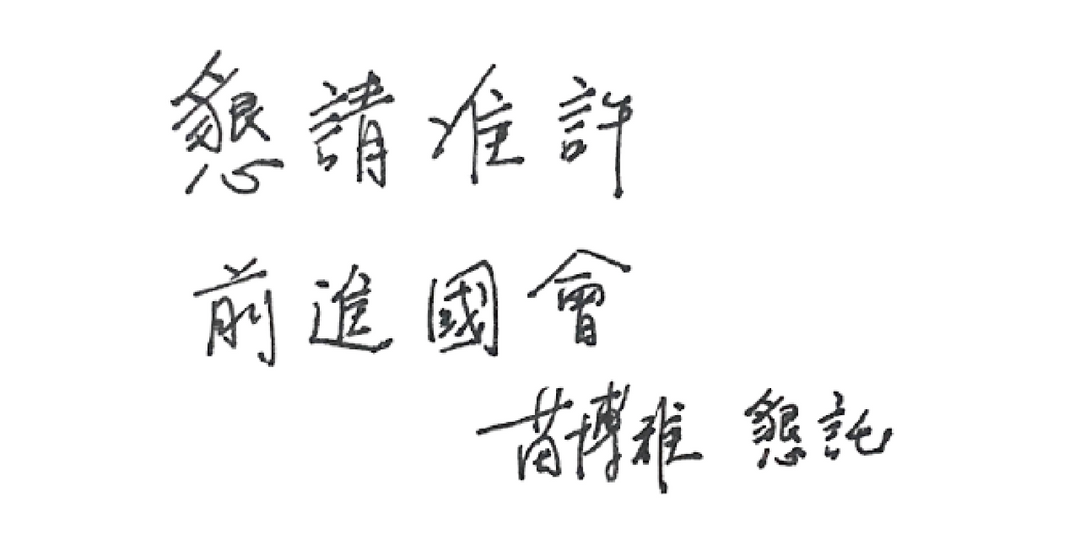 懇請准許
前進國會
苗博雅 懇託